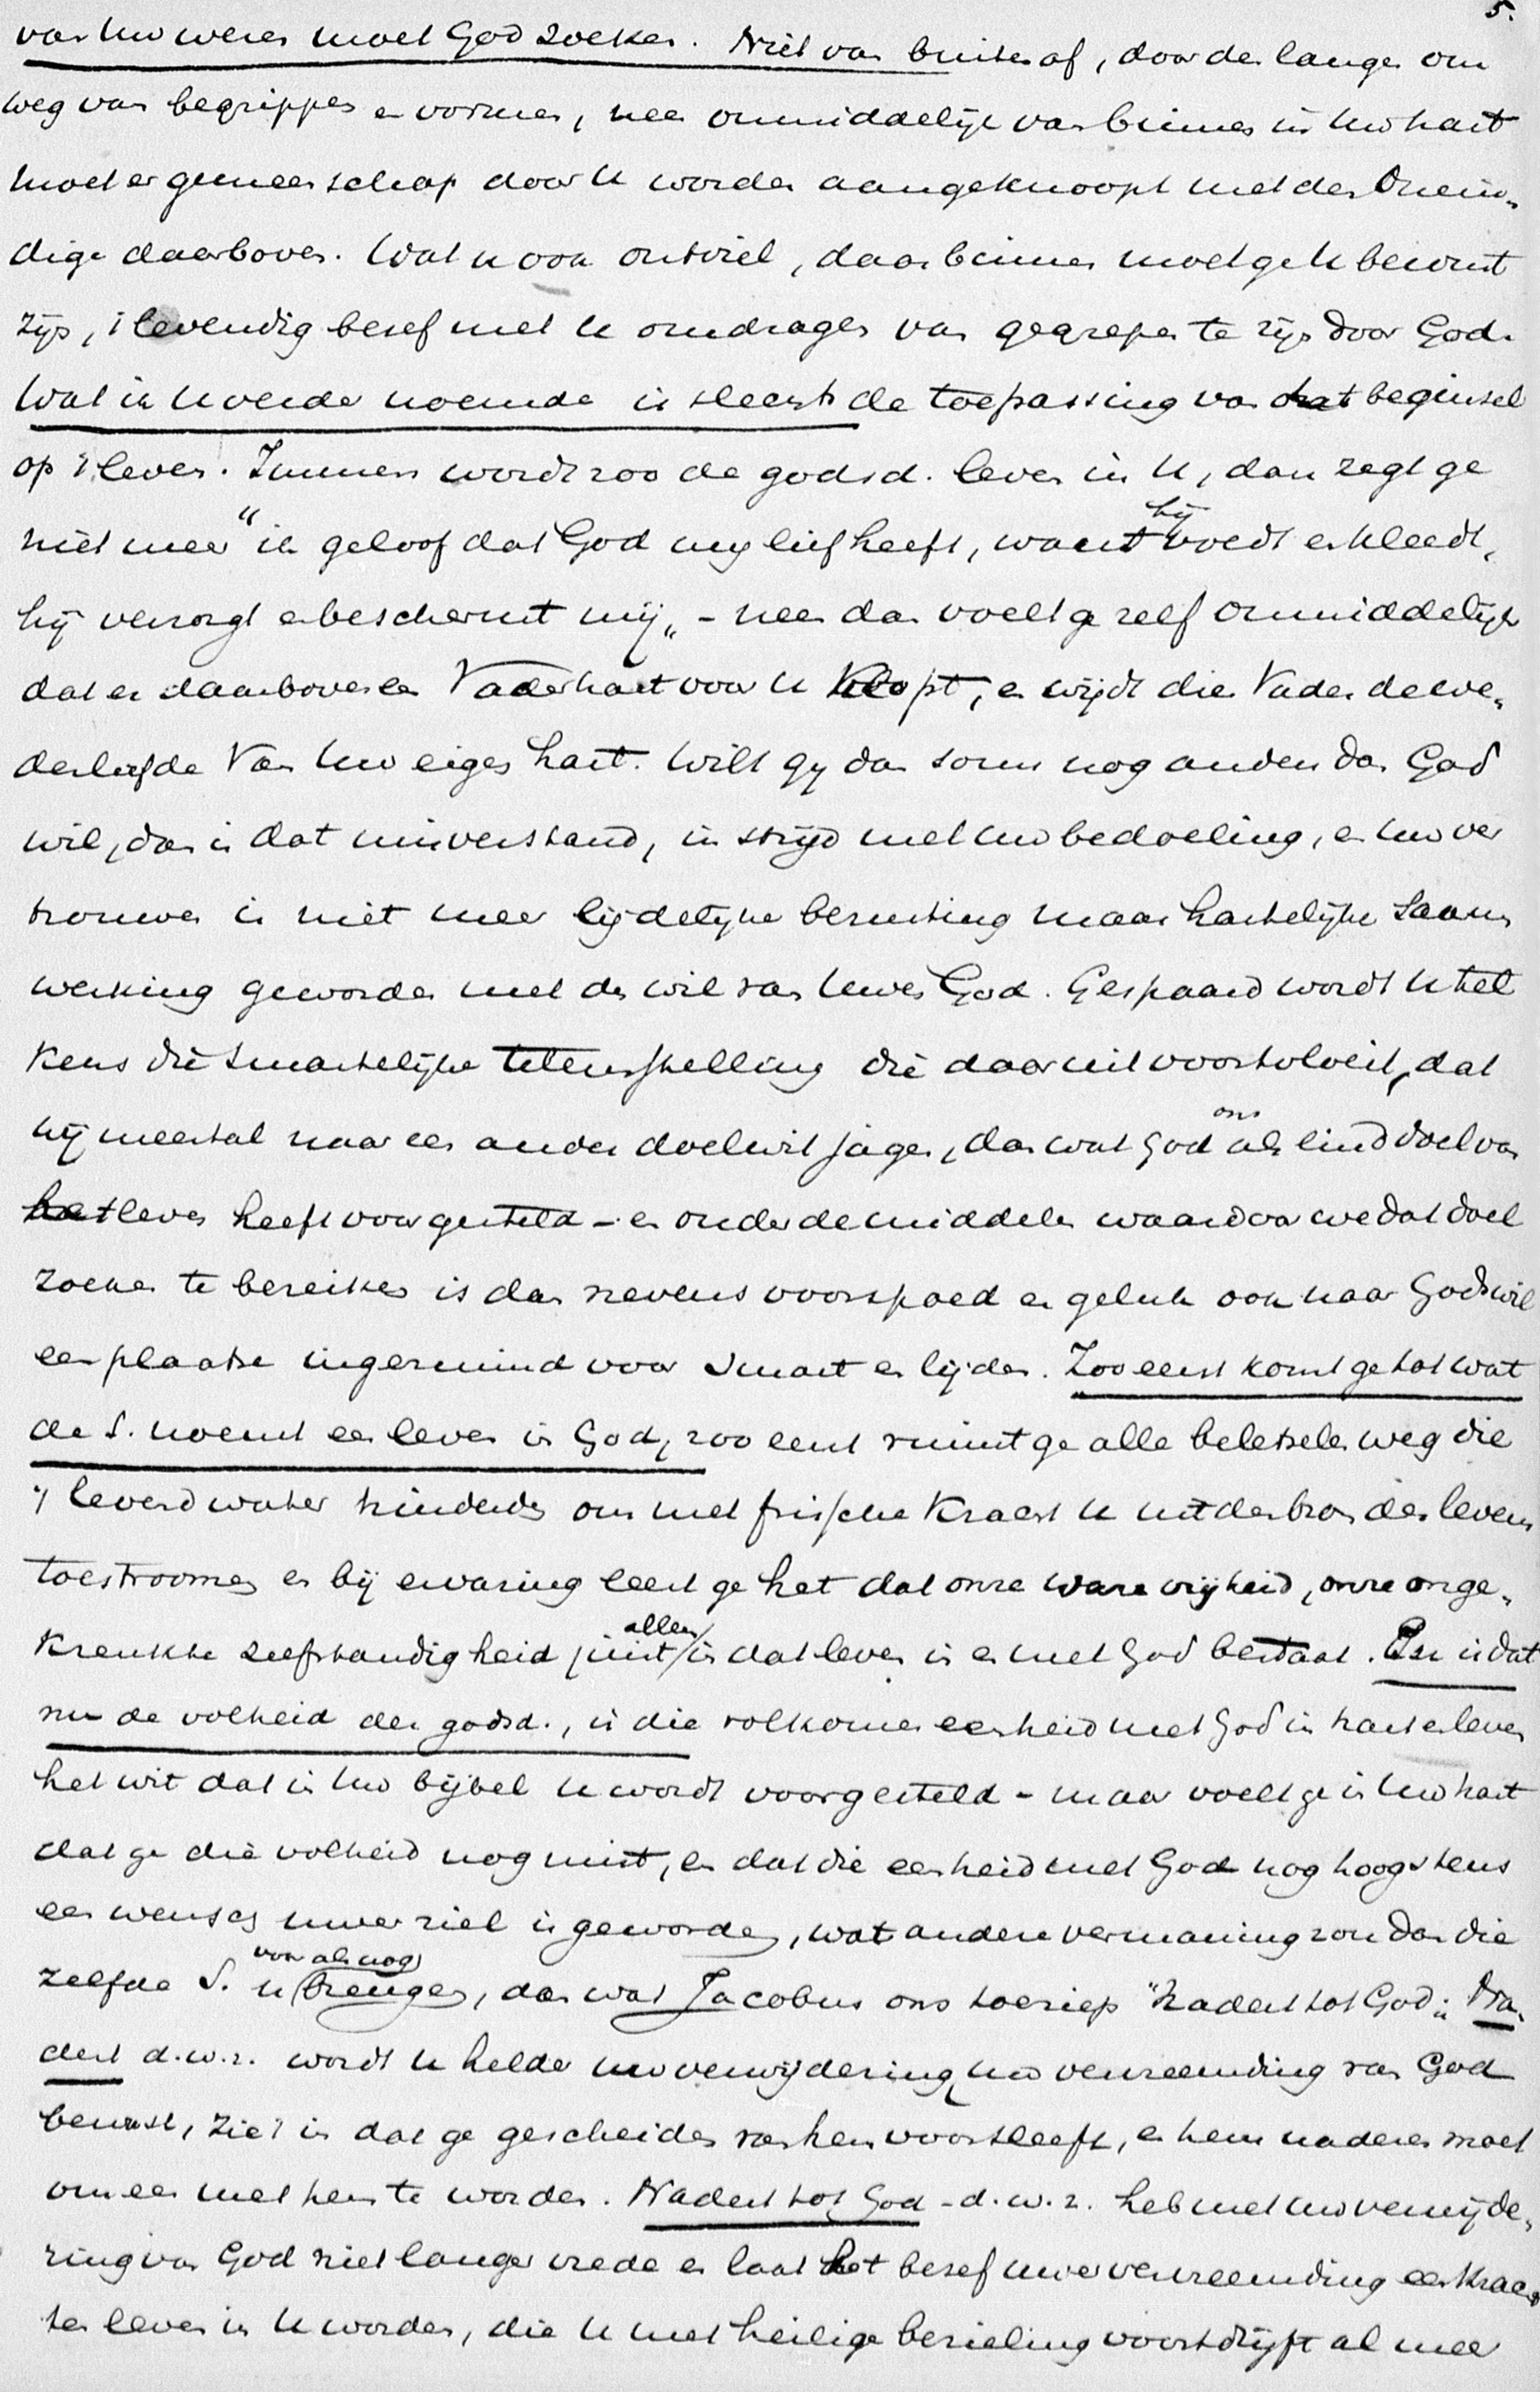 5.
van Uw wezen moet God zoeken. Niet van buiten af, door den langen om
weg van begrippen en vormen, neen onmiddelijk van binnen in Uw hart
moet er gemeenschap door U worden aangeknoopt met den Onein-
dige daarboven. Wat u ook ontviel, daar binnen moet ge U bewust
zijn, 't levendig besef met U omdragen van gegrepen te zijn door God.
Wat ik U verder noemde is slechts de toepassing van dat beginsel
op 't leven. Immers wordt zoo de godsd. leven in U, dan zegt ge
niet meer "ik geloof dat God mij lief heeft, want hij voedt en kleedt,
hij verzorgt en beschermt mij" - neen dan voelt ge zelf onmiddelijk
dat er daarboven een Vaderhart voor U klopt, en wijdt dien Vader de we-
derliefde van Uw eigen hart. Wilt gij dan soms nog anders dan God
wil, dan is dat misverstand, in strijd met Uw bedoeling, en Uw ver
trouwen is niet meer lijdelijke berusting maar hartelijke saam
werking geworden met den wil van Uwen God. Gespaard wordt U tel
kens die smartelijke teleurstelling die daaruit voortvloeit, dat
wij meestal naar een ander doelwit jagen, dan wat God ons als einddoel van
het leven heeft voorgesteld - en onder de middelen waardoor we dat doel
zoeken te bereiken is dan nevens voorspoed en geluk ook naar Gods wil
een plaatse ingeruimd voor smart en lijden. Zoo eerst komt ge tot wat
de S. noemt een leven in God, zoo eerst ruimt ge alle beletselen weg die
't levend water hinderden om met frissche kracht U uit den bron des levens
toestroomen en bij ervaring leert ge het dat onze ware vrijheid, onze onge-
krenkte zelfstandigheid juist alleen in dat leven in en met God bestaat. En is dat
nu de volheid der godsd., is die volkomen eenheid met God in hart en leven
het wit dat in Uw bijbel U wordt voorgesteld - maar voelt ge in Uw hart
dat ge die volheid nog mist, en dat die eenheid met God nog hoogstens
een wensch uwer ziel is geworden, wat andere vermaning zou dan die
zelfde S. U voor als nog brengen, dan wat Jacobus ons toeriep "Nadert tot God". Na-
dert d.w.z. wordt U helder uw verwijdering, uw vervreemding van God
bewust, ziet in dat ge gescheiden van hem voortleeft, en hem naderen moet
om een met hem te worden. Nadert tot God - d.w.z. heb met Uw verwijde-
ring van God niet langer vrede en laat het besef uwer vervreemding een kracht
ten leven in U worden, die U met heilige bezieling voortdrijft al meer